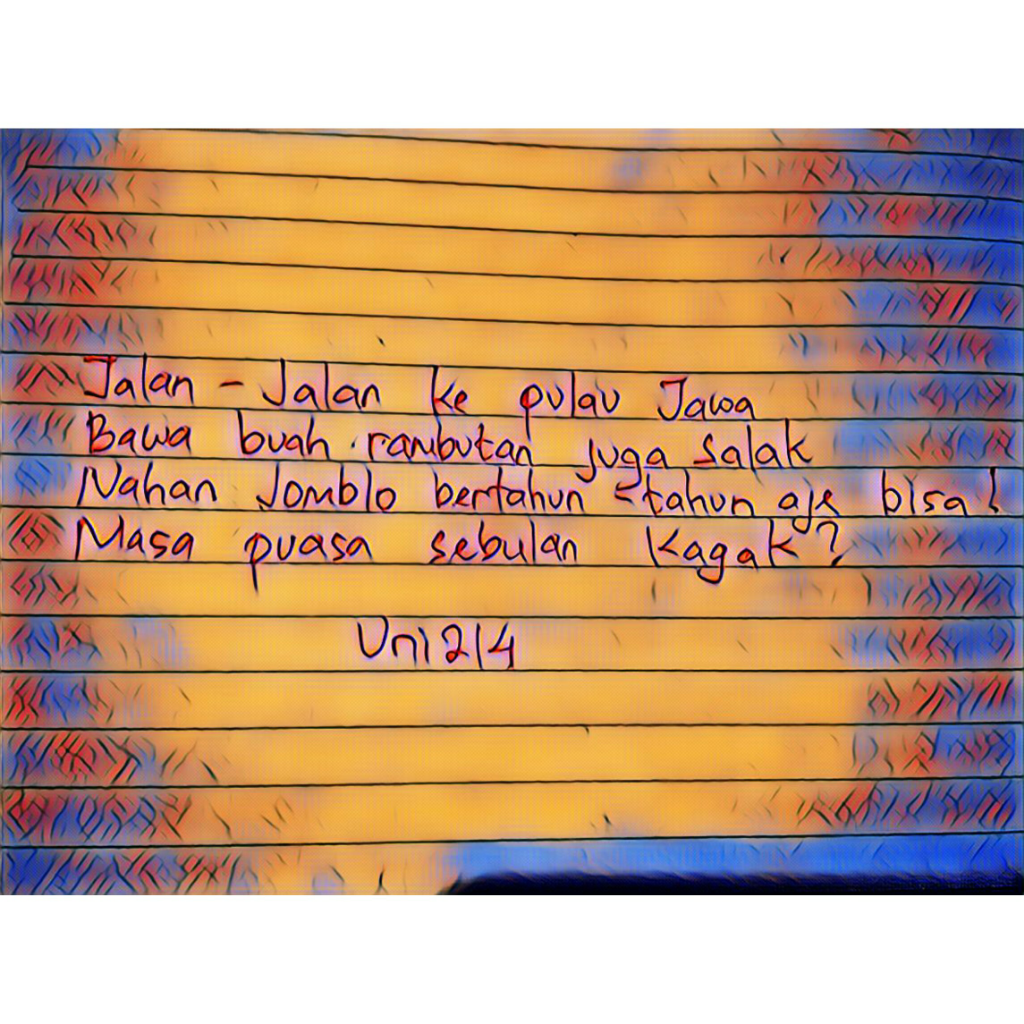 Jalan - Jalan ke pulau Jawa
Bawa buah rambutan juga salak
Nahan Jomblo bertahun - tahun aje bisa!
Masa puasa sebulan kagak?
Uni214